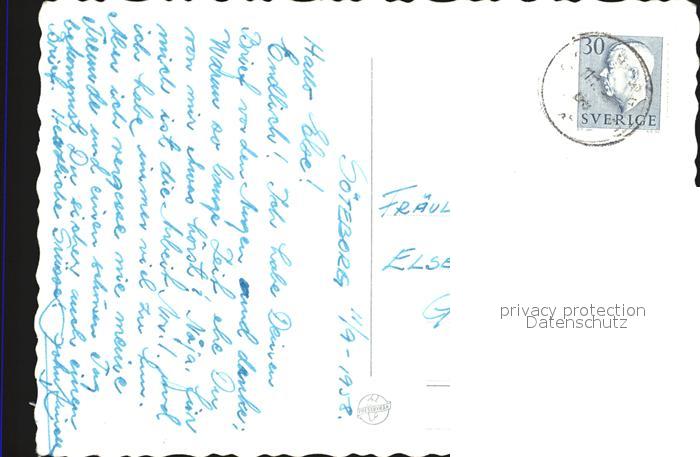 GÖTEBORG 11/9-1958.
Hallo Else!
Endlich! Ich habe Deinen
Brief vor den Augen und danke.
Warum so lange Zeit ehe Du
von mir etwas hörst? Naja, für
mich ist die Arbeit Nr. 1. und
ich habe immer viel zu tun.
Aber ich vergesse nie meine
Freunde und einen schönen Tag
bekommst Du sicher auch einen
Brief. Herzliche Grüsse!
FRÄUL
ELSE
G
30
SVERIGE
privacy protection
Datenschutz